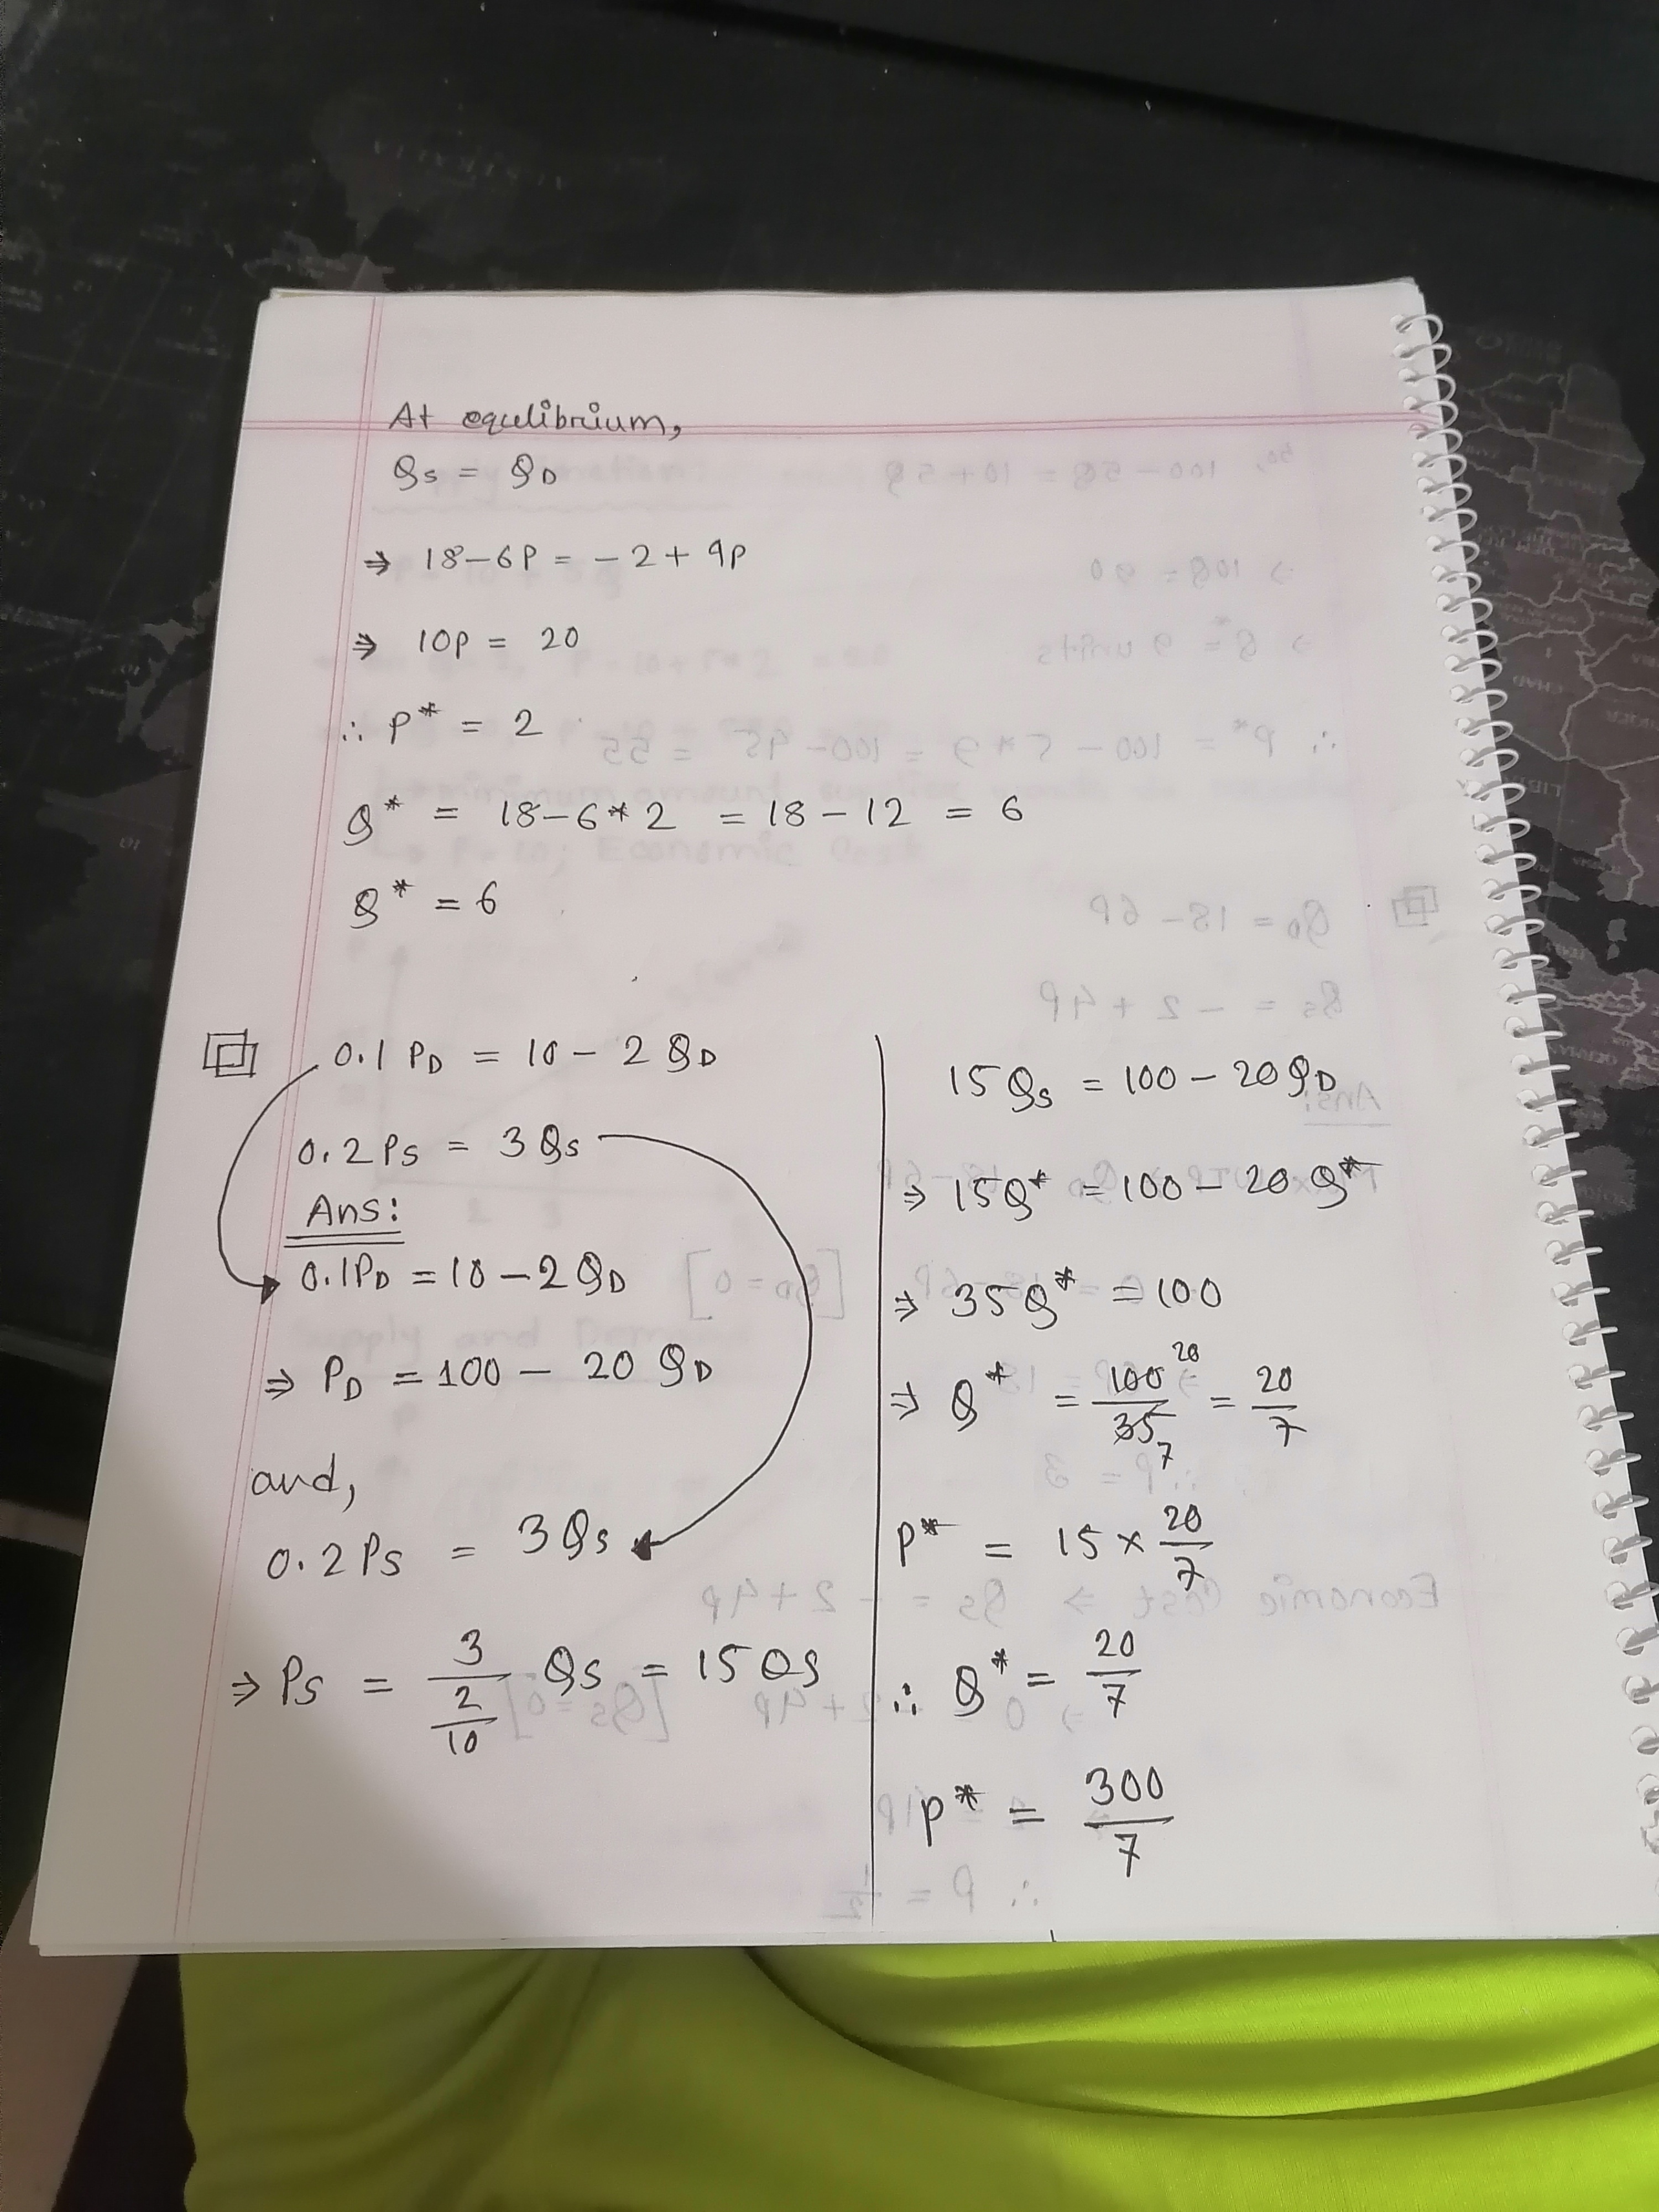 At equlibrium,
Qs = QD
⇒ 18-6P = -2 + 4P
⇒ 10P = 20
∴ P* = 2
Q* = 18-6*2 = 18-12 = 6
Q* = 6
0.1 PD = 10 - 2 QD
0.2 Ps = 3 Qs
Ans:
0.1PD = 10 - 2 QD
⇒ PD = 100 - 20 QD
and,
0.2 Ps = 3 Qs
⇒ Ps = 3/(2/10) Qs = 15 Qs
15 Qs = 100 - 20 QD
⇒ 15 Q* = 100 - 20 Q*
⇒ 35 Q* = 100
⇒ Q* = 100/35 20 7 = 20/7
P* = 15 × 20/7
∴ Q* = 20/7
P* = 300/7